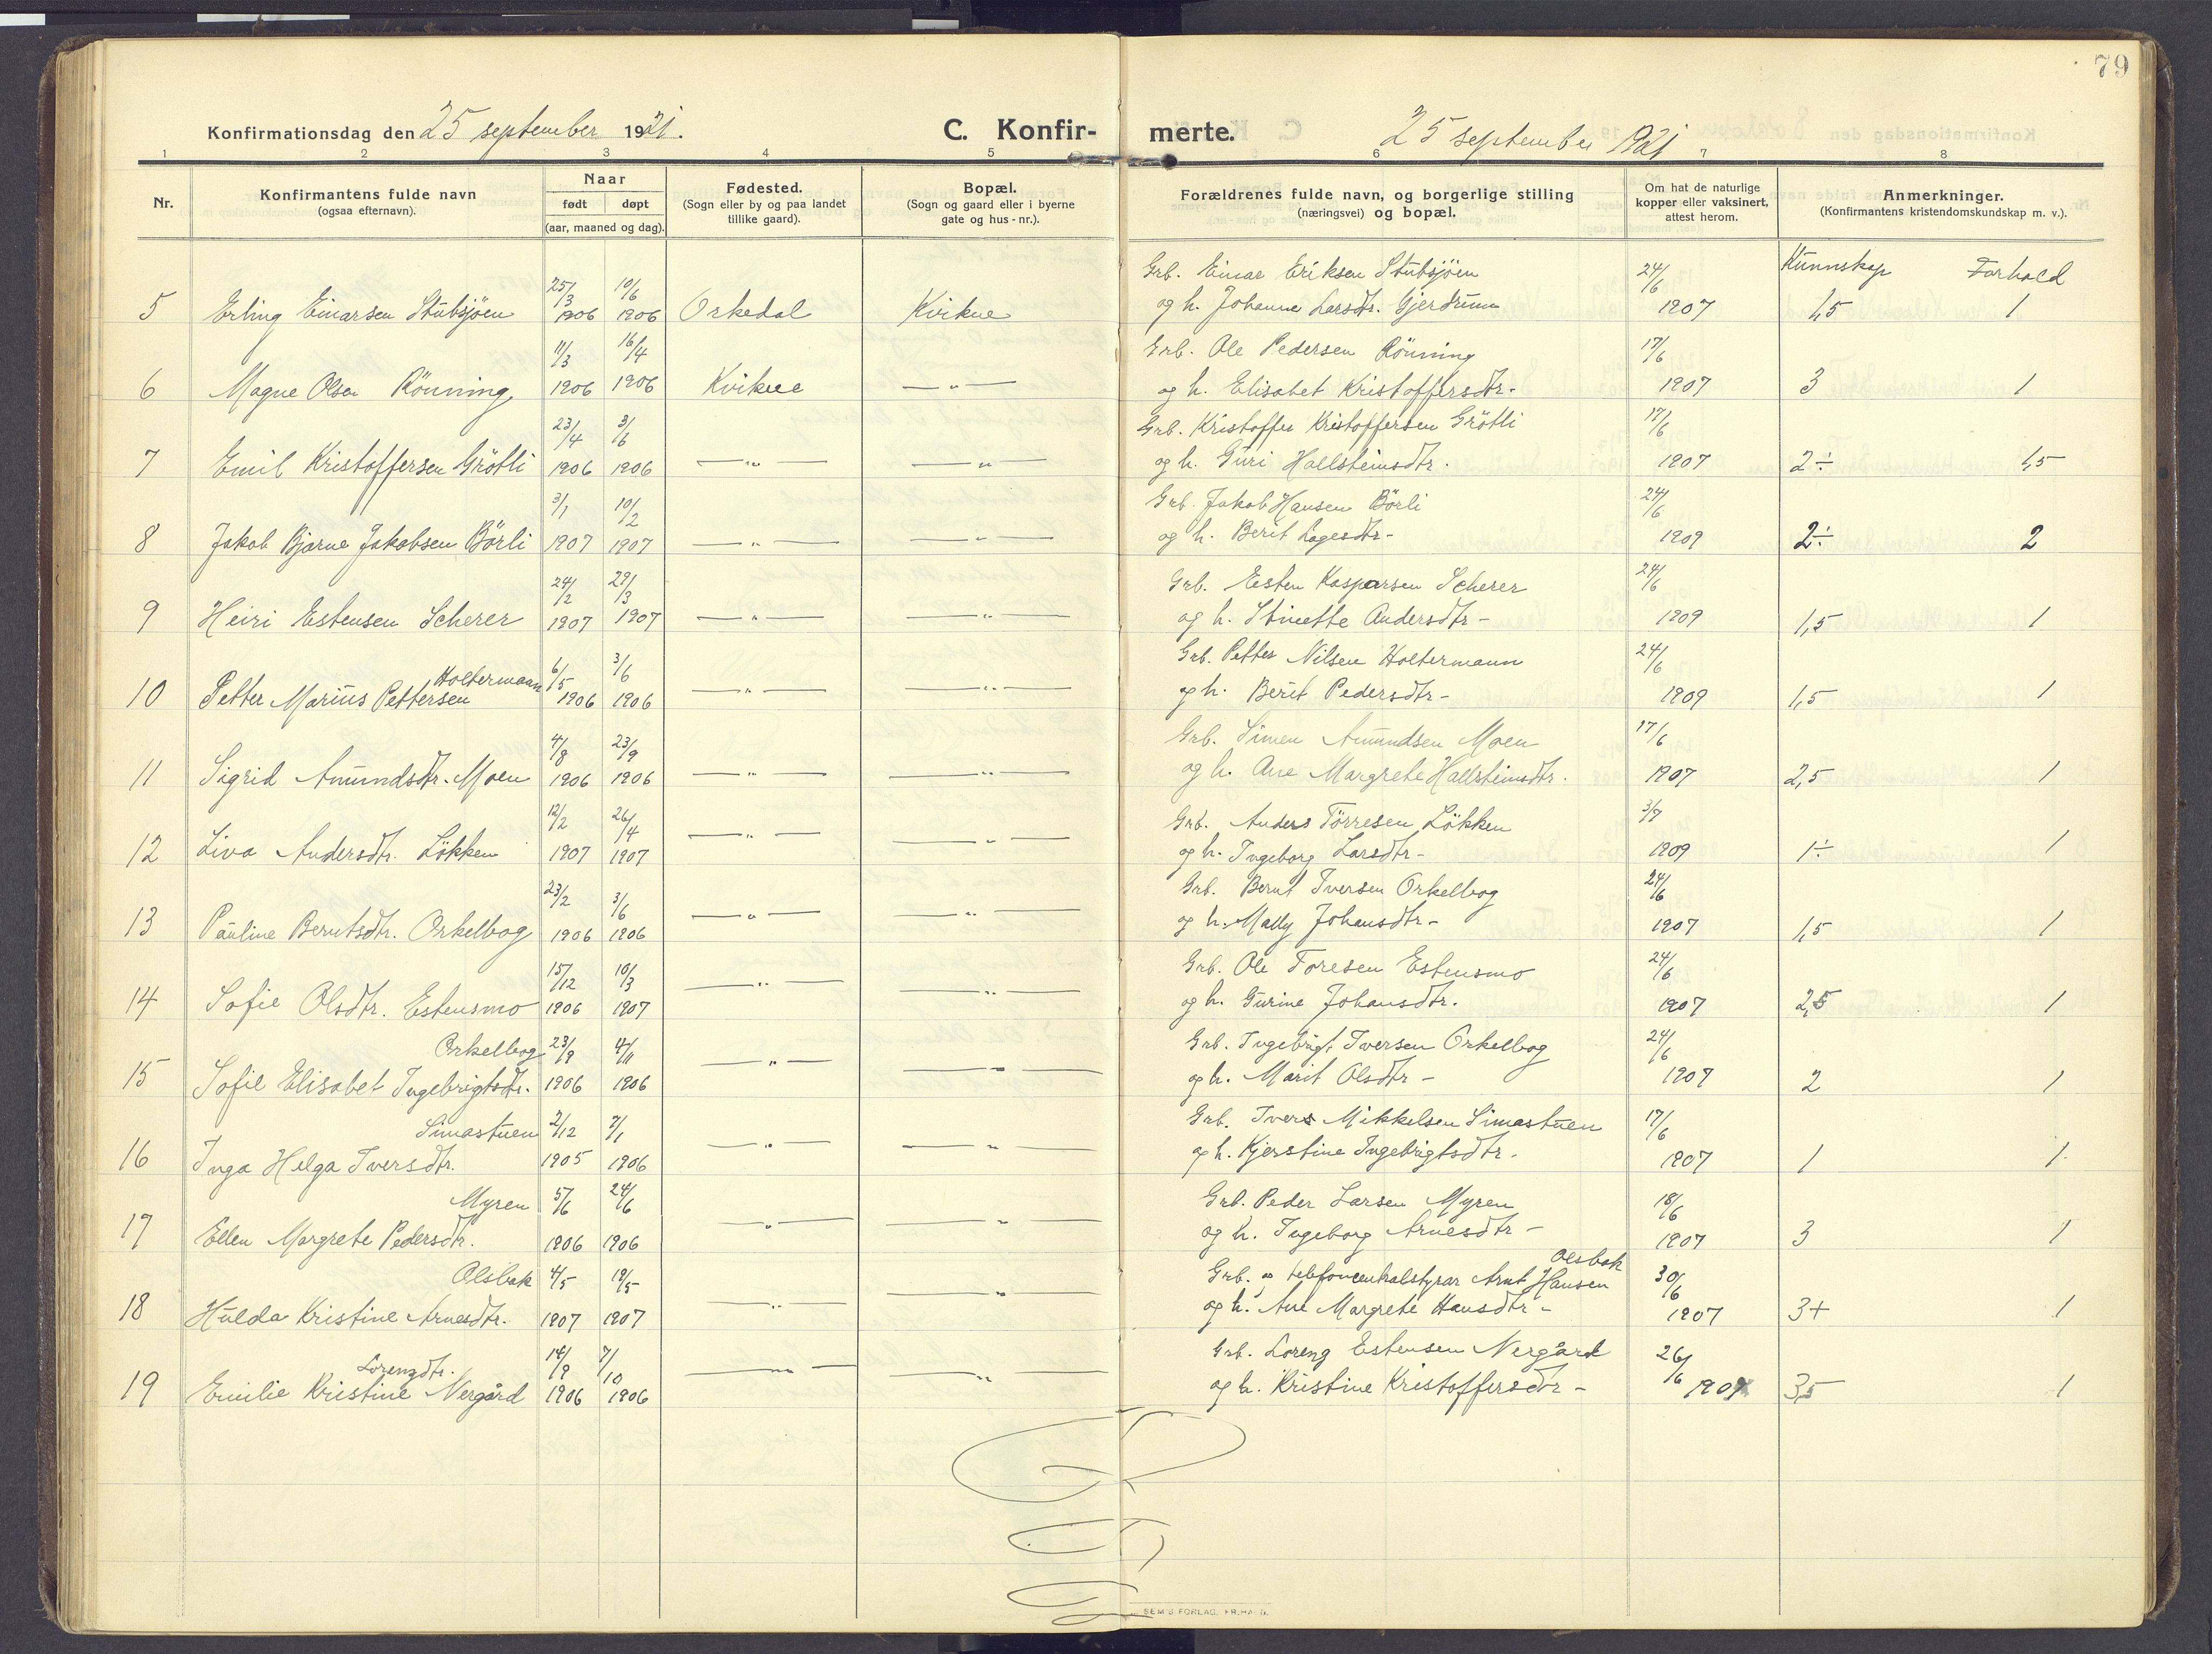 79
Konfirmationsdag den 25 september 1921.
C. Konfir-
merte.
25 september 1921
1 2 3 4 5 6 7 8
Nr.
Konfirmantens fulde navn
(ogsaa efternavn).
Naar
født døpt
(aar, maaned og dag).
Fødested.
(Sogn eller by og paa landet
tillike gaard).
Bopæl.
(Sogn og gaard eller i byerne
gate og hus-nr.).
Forældrenes fulde navn, og borgerlige stilling
(næringsvei) og bopæl.
Om hat de naturlige
kopper eller vaksinert,
attest herom.
Anmerkninger.
(Konfirmantens kristendomskundskap m. v.).
Kunnskap Forhold
25/3 10/6 Grb. Einar Eriksen Stubsjöen 24/6
5 Erling Einarsen Stubsjöen 1906 1906 Orkedal Kvikne og h. Johanne Larsdtr. Gjerdrum 1907 1,5 1
11/3 16/4 Grb. Ole Pedersen Rönning 17/6
6 Magne Olsen Rönning 1906 1906 Kvikne — " — og h. Elisabet Kristoffersdtr- 1907 3 1
23/4 3/6 Grb. Kristoffer Kristoffersen Gröthi 17/6
7 Emil Kristoffersen Grötli 1906 1906 — " — — " — og h. Guri Hallsteinsdtr. 1907 2÷ 1,5
3/1 10/2 Grb. Jakob Hansen Börli 24/6
8 Jakob Bjarne Jakobsen Börli 1907 1907 — " — — " — og h. Berit Lagesdtr- 1909 2÷ 2
24/2 29/3 Grb. Esten Kasparsen Scherer 24/6
9 Heiri Estensen Scherer 1907 1907 — " — — " — og h. Stinette Andersdtr- 1909 1,5 1
Holtermann 6/5 3/6 Grb. Petter Nilsen Holtermann 24/6
10 Petter Marius Pettersen 1906 1906 — " — — " — og h. Berit Pedersdtr- 1909 1,5 1
4/8 23/9 Grb. Simen Amundsen Moen 17/6
11 Sigrid Amundsdtr. Moen 1906 1906 — " — — " — og h. Ane Margrete Hallsteinsdtr. 1907 2,5 1
12/2 26/4 Grb. Anders Törresen Lökken 3/7
12 Liva Andersdtr. Lökken 1907 1907 — " — — " — og h. Ingeborg Larsdtr- 1909 1÷ 1
23/2 3/6 Grb. Bernt Iversen Orkelbog 24/6
13 Pauline Berntsdtr. Orkelbog 1906 1906 — " — — " — og h. Mally Johansdtr- 1907 1,5 1
15/12 10/3 Grb. Ole Toresen Estensmo 24/6
14 Sofie Olsdtr. Estensmo 1906 1907 — " — — " — og h. Gurine Johansdtr. 1907 2,5 1
Orkelbog 23/9 4/11 Grb. Ingebrigt Iversen Orkelbog 24/6
15 Sofie Elisabet Ingebrigtsdtr. 1906 1906 — " — — " — og h. Marit Olsdtr- 1907 2 1
Simastuen 2/12 7/1 Grb. Iver Mikkelsen Simastuen 17/6
16 Inga Helga Iversdtr. 1905 1906 — " — — " — og h. Kjerstine Ingebrigtsdtr- 1907 1 1
Myren 5/6 24/6 Grb. Peder Larsen Myren 18/6
17 Ellen Margrete Pedersdtr. 1906 1906 — " — — " — og h. Ingeborg Arnesdtr- 1907 3 1
Olsbak
Olsbak 4/5 19/5 Grb. og telefoncentralstyrar Arnt Hansen 30/6
18 Hulda Kristine Arnesdtr. 1907 1907 — " — — " — og h. Ane Margrete Hansdtr- 1907 3+ 1
Lorengdtr. 14/9 7/10 Grb. Loreng Estensen Nergård 26/6
19 Emilie Kristine Nergård 1906 1906 — " — — " — og h. Kristine Kristoffersdtr- 3,5 1
SEM'S FORLAG, FR.HALD.